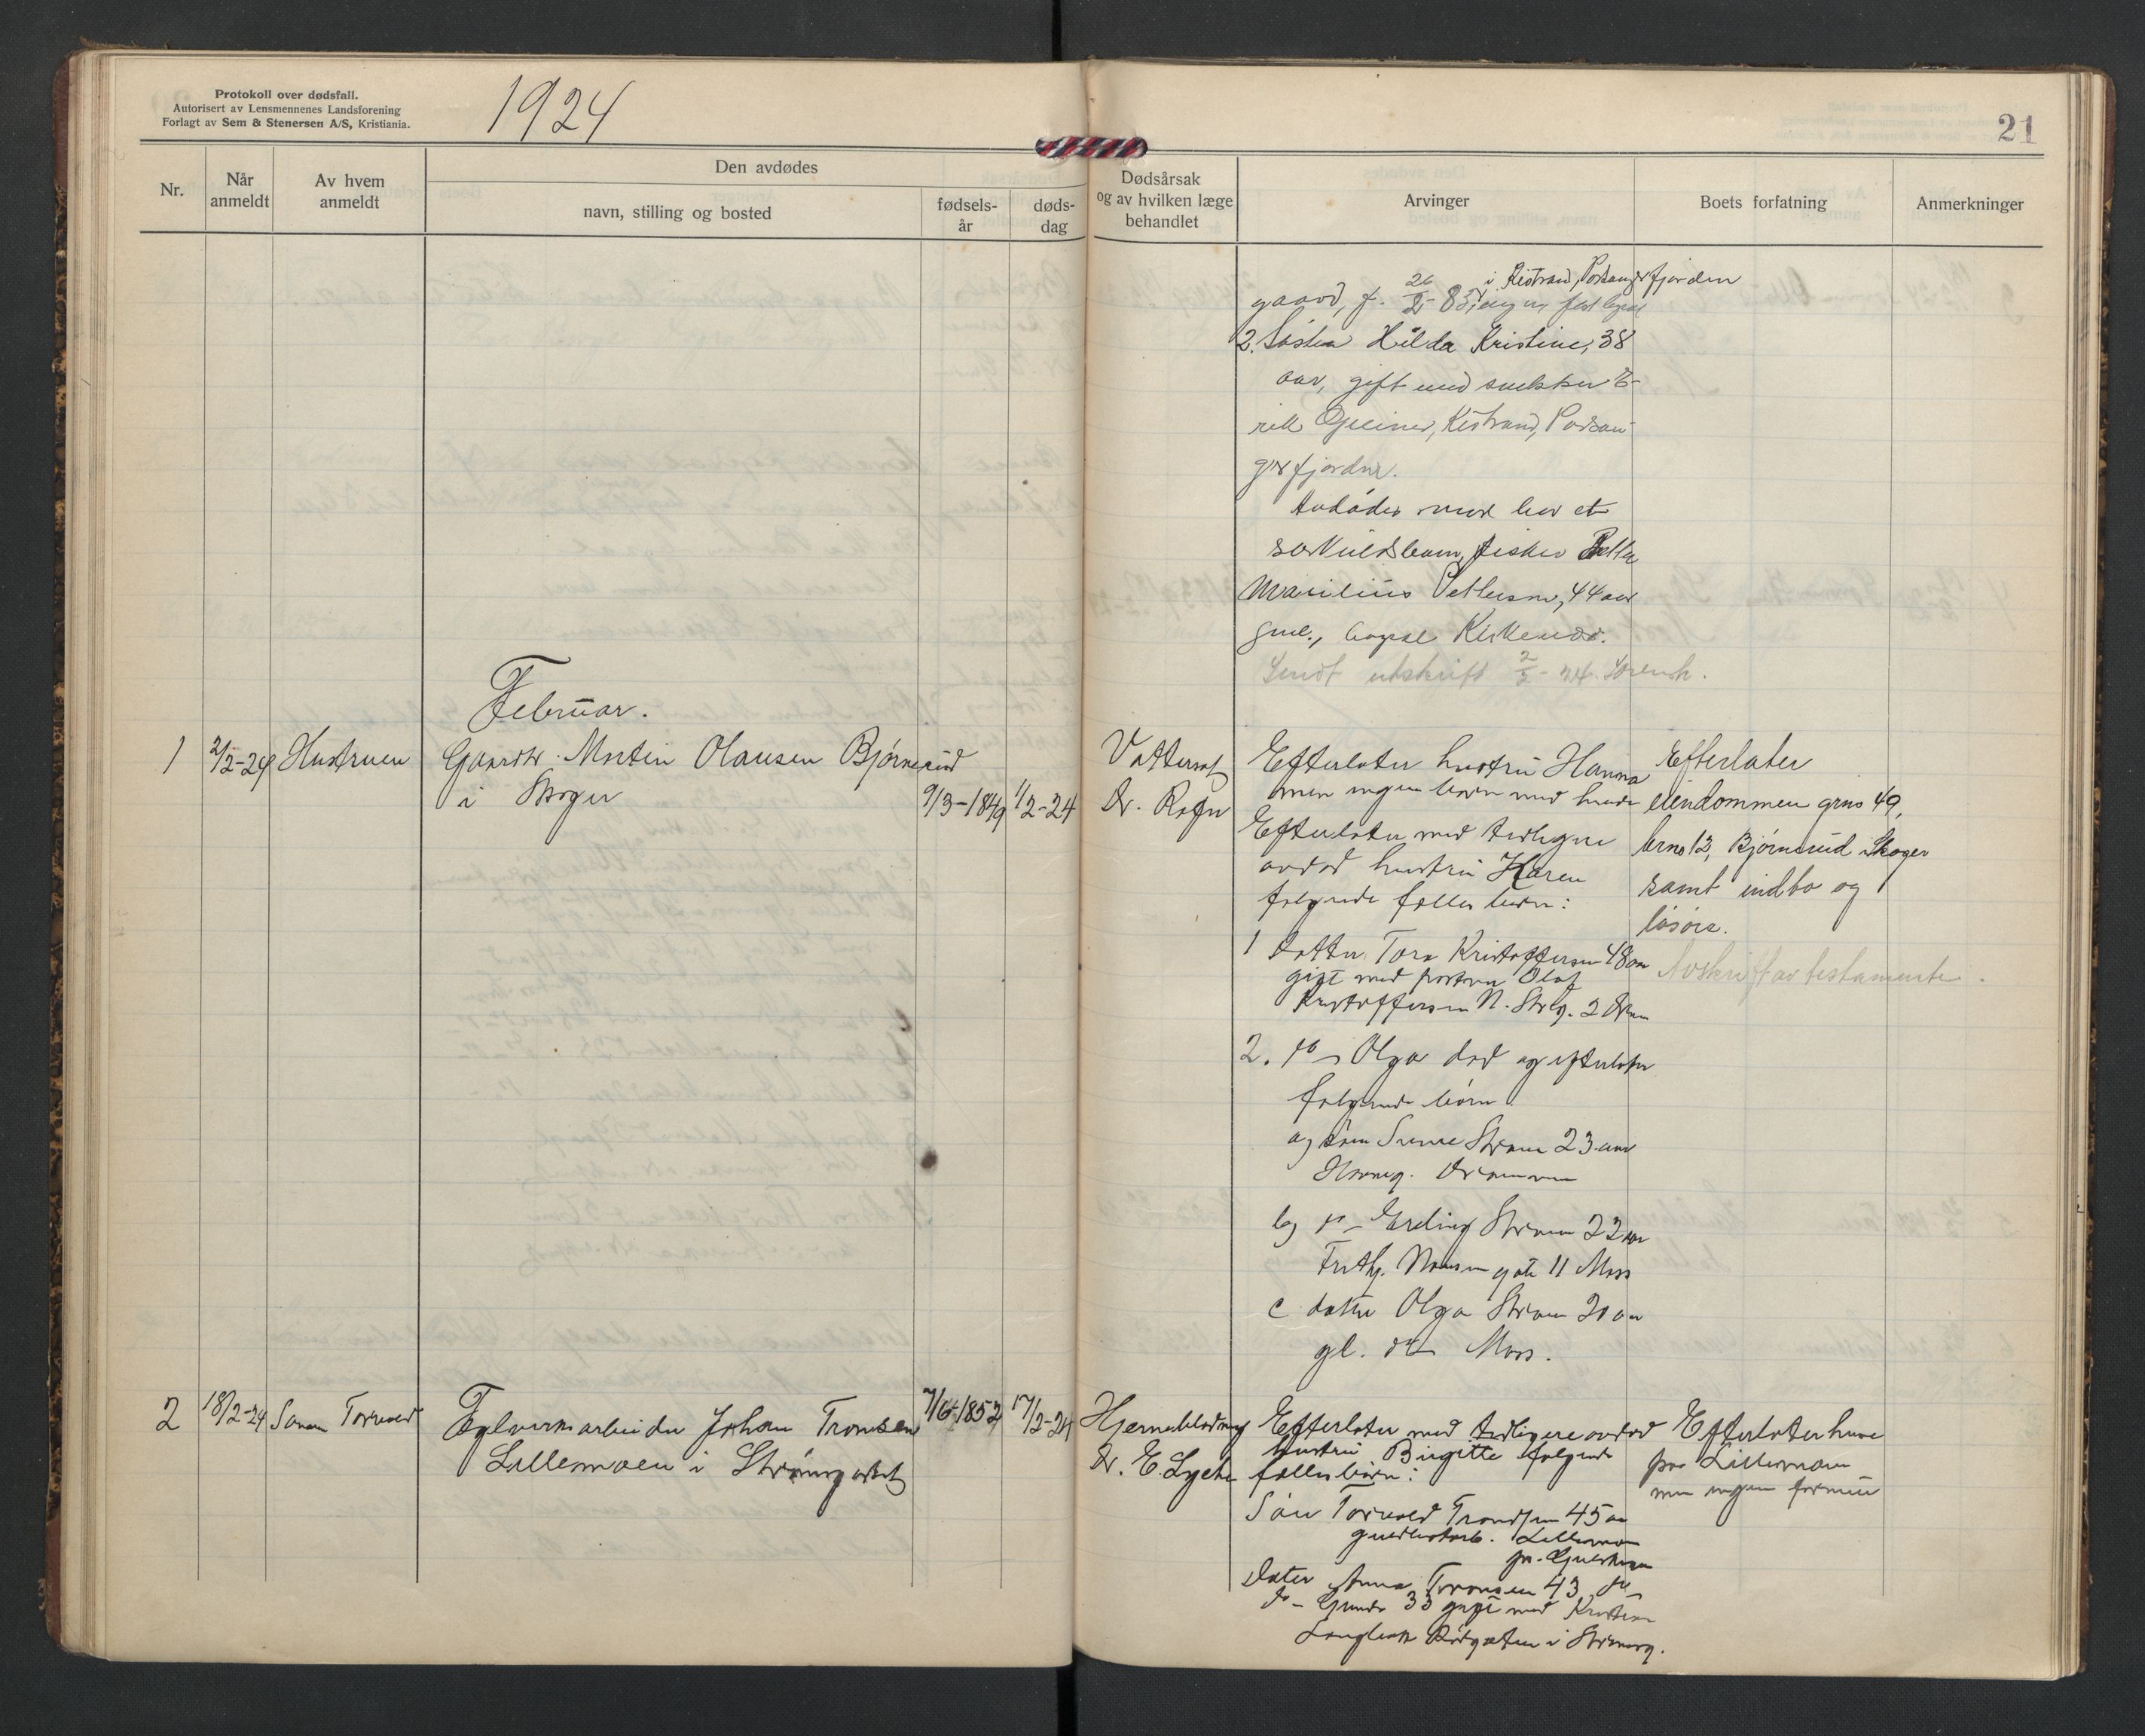 Protokoll over dødsfall.
Autorisert av Lensmennenes Landsforening
Forlagt av Sem & Stenersen A/S, Kristiania.
1924
21
Nr.
Når anmeldt
Av hvem anmeldt
Den avdødes
navn, stilling og bosted
fødsels-år
døds-dag
Dødsårsak og av hvilken læge behandlet
Arvinger
Boets forfatning
Anmerkninger
i Kistrand, Porsangerfjorden
gaard, f. 26/5-85, ingen fast bopæl
2. Søster Hilda Kristine, 38
aar, gift med snekker E-
rik Greiner, Kistrand, Porsan-
gerfjorden.
Avdødes mor har et
særkuldsbarn, fisker Petter
Marilius Pettersen, 44 aar
gml., bopæl Kirkenæs.
Sendt utskrift 2/5-24 Sorensk.
Februar.
1
2/2-24
Hustruen
Gaardbr. Martin Olausen Bjørnerud
i Skoger
9/3-1849
1/2-24
Vattersot
Dr. Rafn
Efterlater hustru Hanna
men ingen børn med hende
Efterlater med tidligere
avdød hustru Karen
følgende fælles børn:
1 Datter Tora Kristoffersen 48 aar
gift med Olaf
Kristoffersen N. Strg. 2 Drm
2. do Olga død og efterlater
følgende børn
a) søn Strøm 23 aar
Drammen
b) do Erling Strøm 22 aar
Fridtj. Nansen gate 11 Moss
c datter Olga Strøm 20 aar
gl. do Moss.
Efterlater
eiendommen grno 49,
brno 12, Bjørnerud i Skoger
samt indbo og
løsøre.
Avskrift av testamente.
2
18/2-24
Sønnen Torvald
Teglverksarbeider Johan Tronsen
Lillemoen i Strømsgodset
7/6-1852
17/2-24
Hjerneblødning
Dr. E. Lyche
Efterlater med tidligere avdød
hustru Birgitte følgende
fælles børn:
Søn Torvald Trondsen 45 aar
Lillemoen
pr. Gulskogen
Datter Anna Tronsen 43 do
do - Gunda 33 gift med Kristian
i Strømsg.
Efterlater hus
paa Lillemoen
men ingen formue